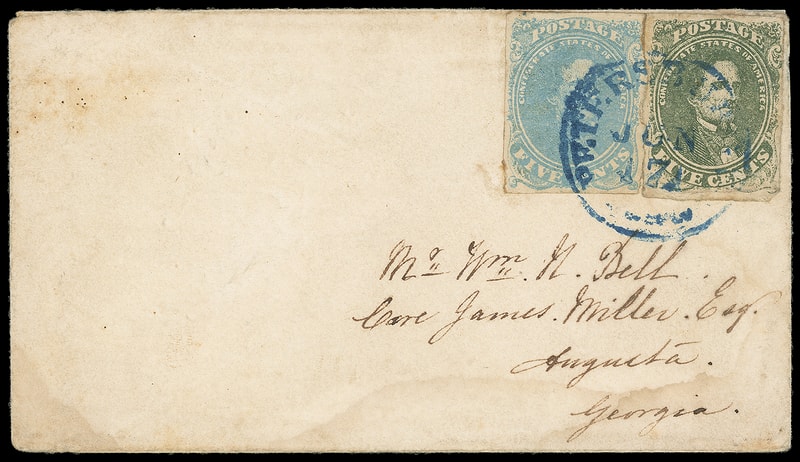 POSTAGE
CONFEDERATE STATES OF AMERICA
FIVE CENTS
POSTAGE
CONFEDERATE STATES OF AMERICA
FIVE CENTS
JUN
Mr. Wm. H. Bell.
Care James. Miller. Esq.
Augusta.
Georgia.